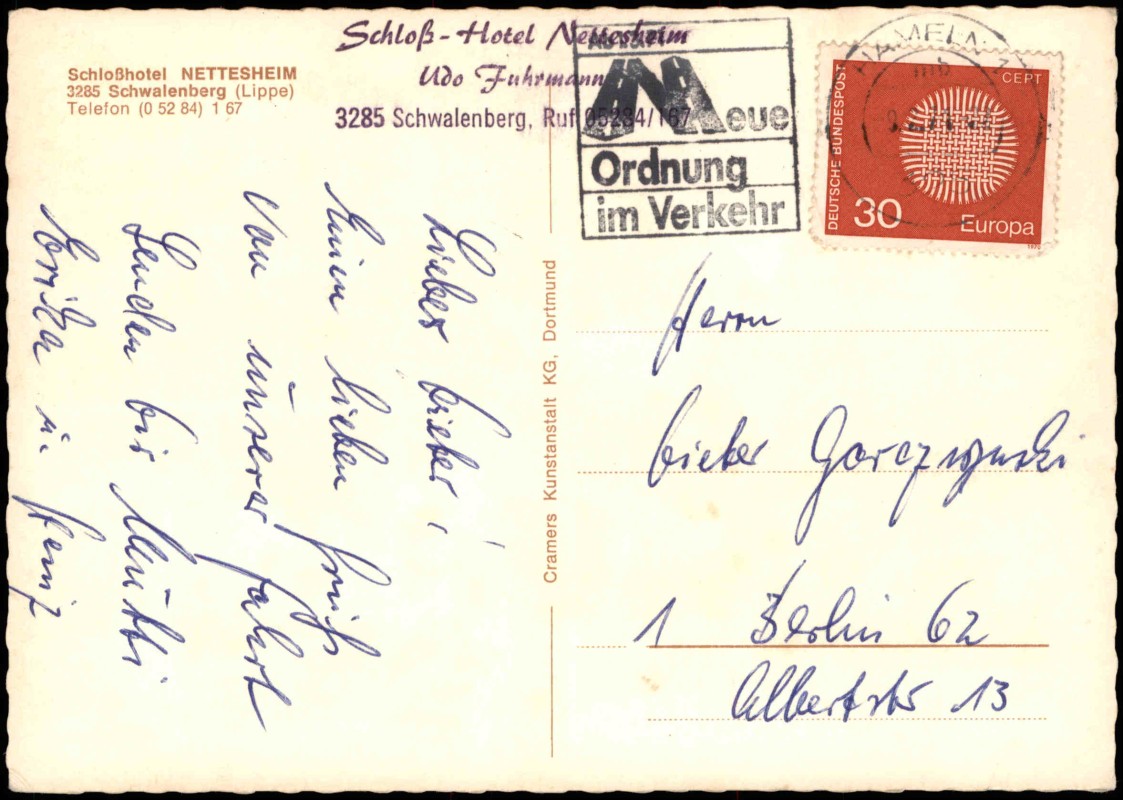 Schloßhotel NETTESHEIM
3285 Schwalenberg (Lippe)
Telefon (0 52 84) 1 67
Schloß-Hotel Nettesheim
Udo Fuhrmann
3285 Schwalenberg, Ruf 05284/167
Neue
Ordnung
im Verkehr
HAMELN 1
mb
DEUTSCHE BUNDESPOST
CEPT
30
Europa
1970
Lieber Dieter!
Einen lieben Gruß
von unserer Fahrt
senden dir Mutti
Erika u. Heinz
Cramers Kunstanstalt KG, Dortmund
Herrn
Dieter Gorczynski
1 Berlin 62
Albertstr 13